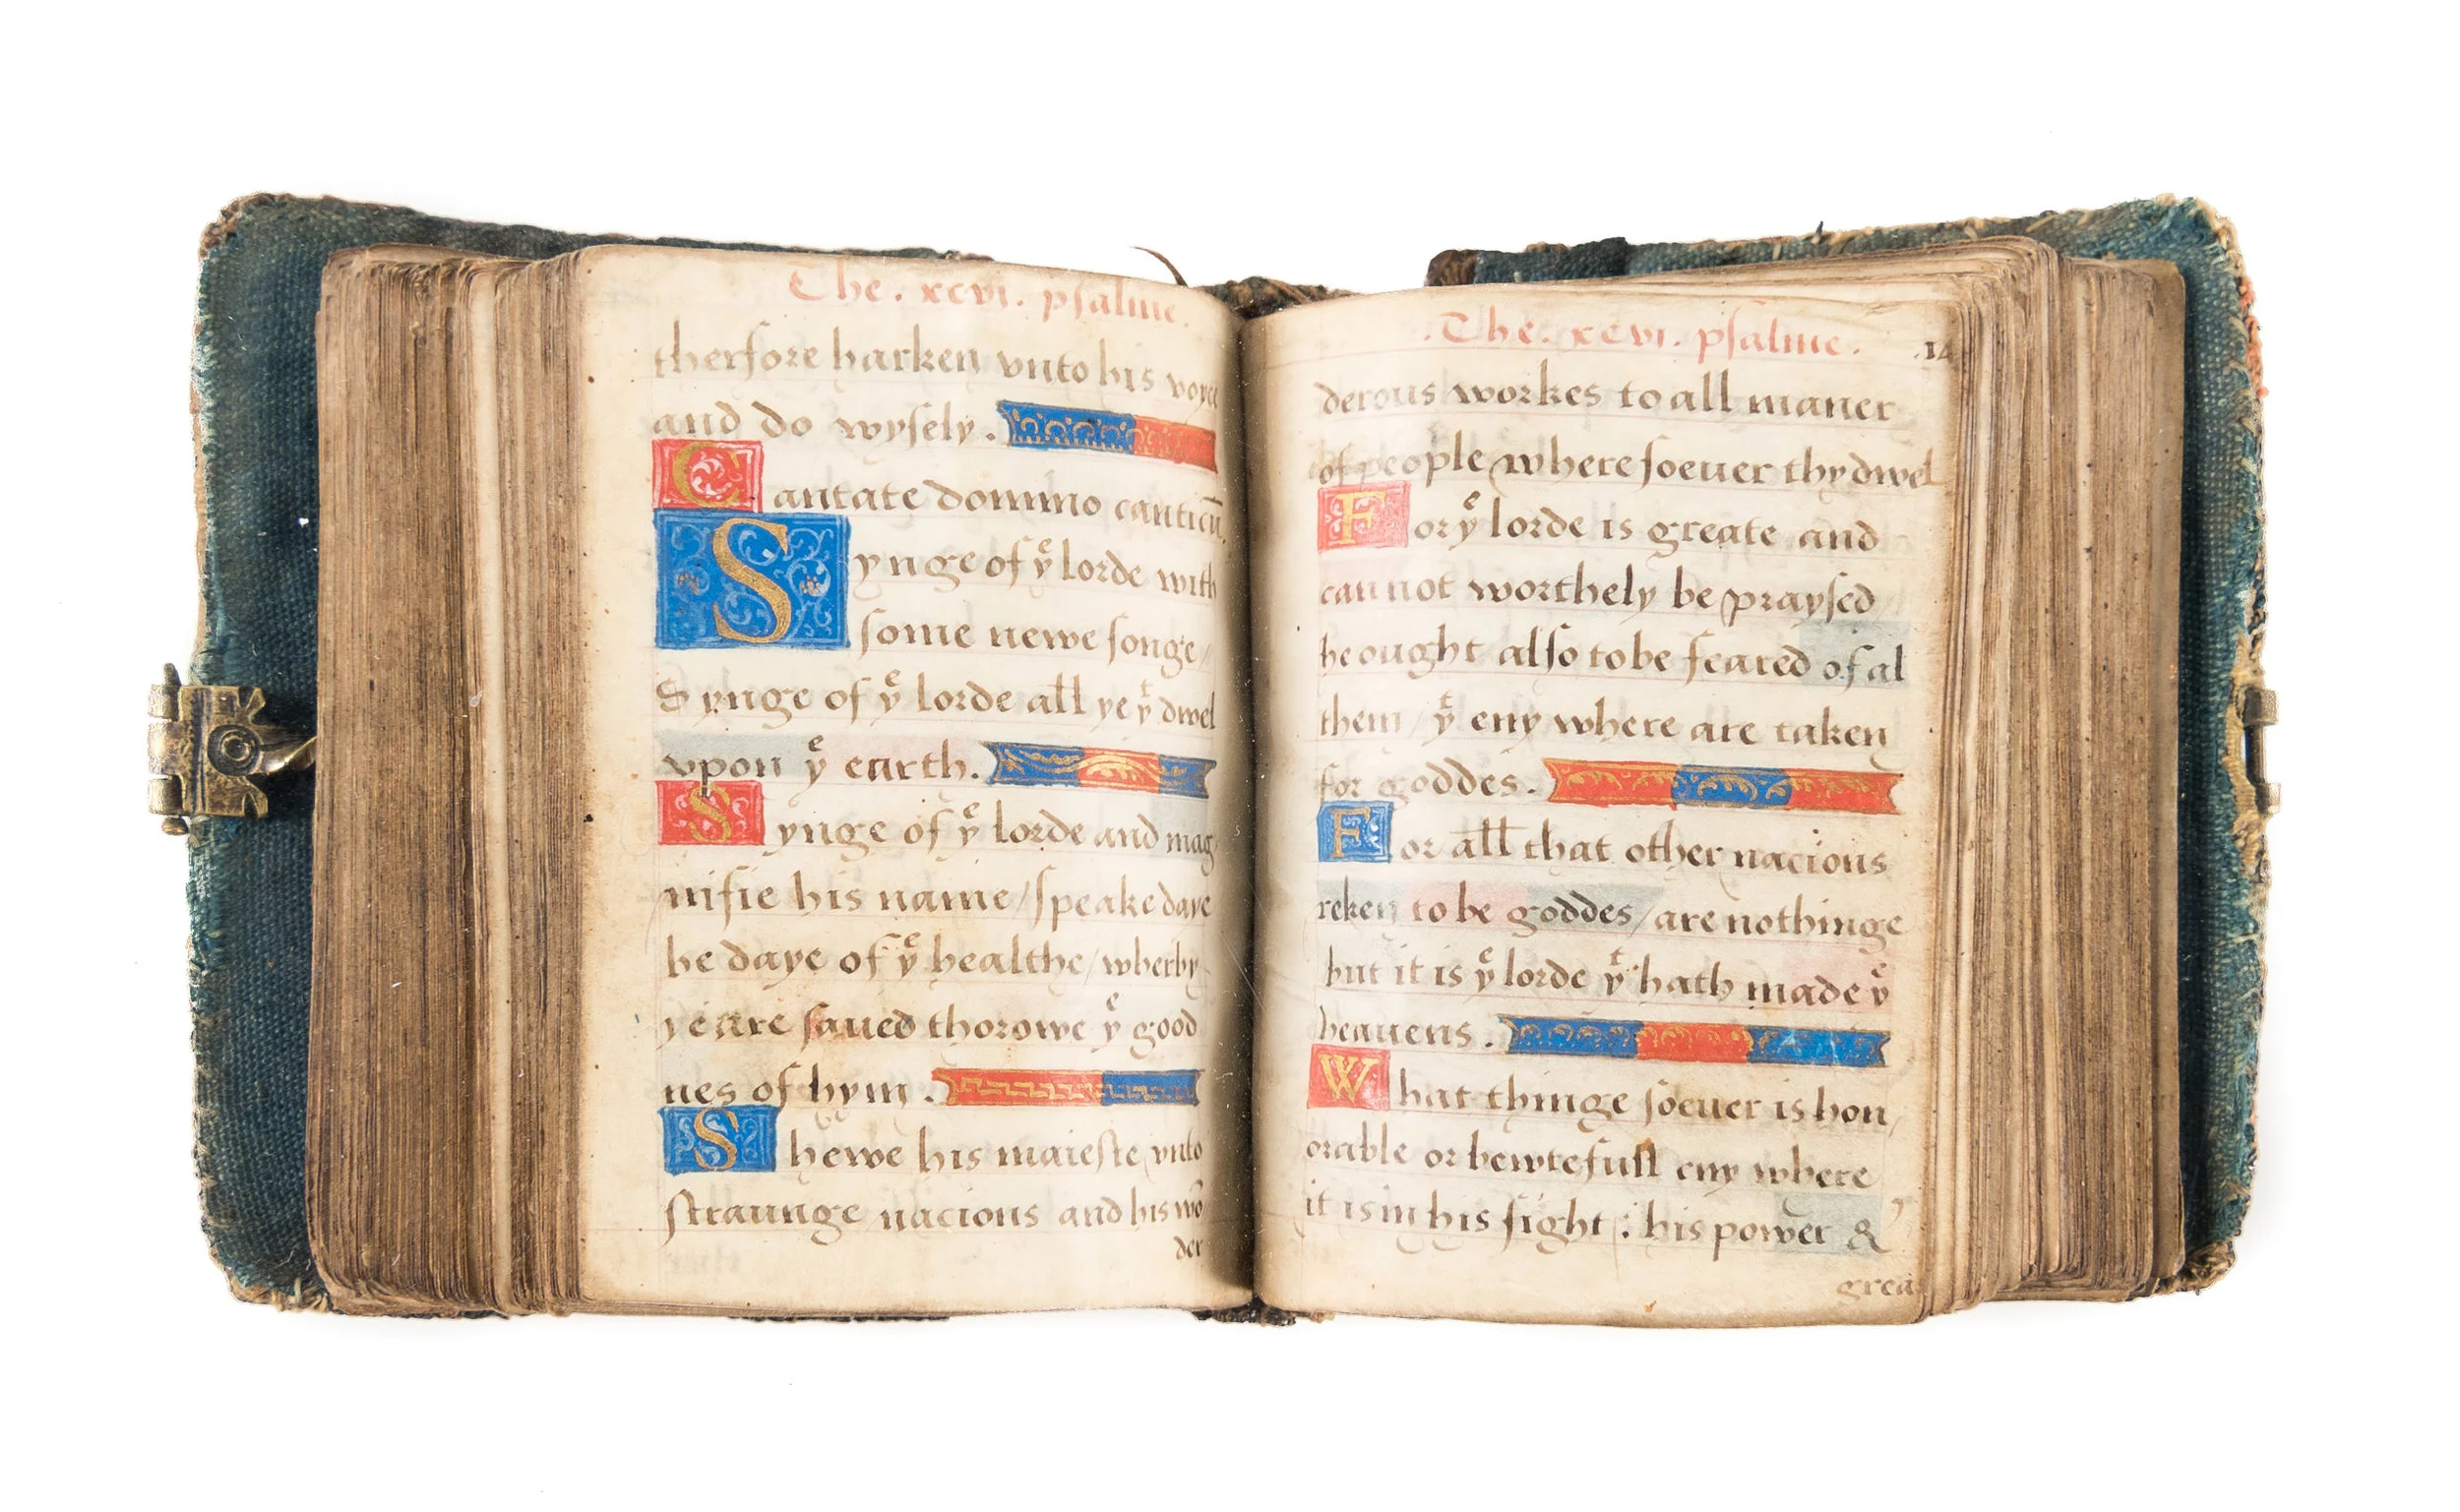 The . xcvi . psalme .
therfore harken vnto his voyce
and do wysely .
Cantate domino canticū .
Synge of yͤ lorde with
some newe songe /
Synge of yͤ lorde all ye yͭ dwel
vpon yͤ earth .
Synge of yͤ lorde and mag
nifie his name / speake daye
be daye of yͤ healthe / wherby
ye are saued thorowe yͤ good
nes of hym .
Shewe his maieste vnto
straunge nacions and his wō
der
. The . xcvi . psalme .
derous workes to all maner
of people where soeuer thy dwel
For yͤ lorde is greate and
cannot worthely be praysed
he ought also to be feared of al
them / yͭ eny where are taken
for goddes .
For all that other nacions
reken to be goddes / are nothinge
but it is yͤ lorde yͭ hath made yͤ
heauens .
What thinge soeuer is hon /
orable or bewtefull eny where
it is in his sight : his power &
grea